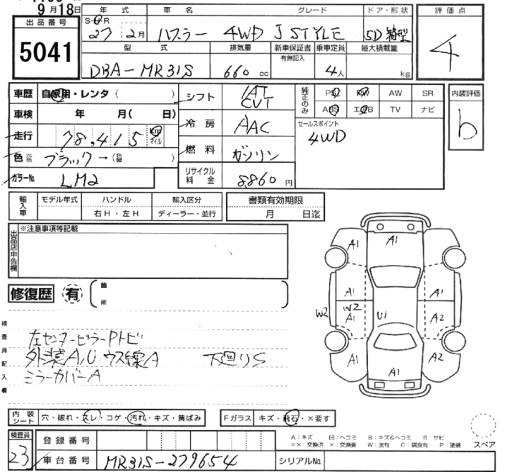 9月18日
出品番号 年式 車名 グレード ドア・形状 評価点
5041 S・H・R 27年 2月 ハスラー 4WD J STYLE 5D 箱型 4
型式 排気量 新車保証書 有無記入 乗車定員 最大積載量
DBA-MR31S 660cc 4人 kg
車歴 自家用・レンタ( ) シフト IAT CVT 純正のみ PS PW AW SR 内装評価
車検 年 月( 日) 冷房 AAC ABS エアB TV ナビ b
走行 78,415 km マイル 燃料 ガソリン セールスポイント
4WD
色 ブラック→
カラーNo LM2 リサイクル料金 8860円
輸入車 モデル年式 ハンドル 輸入区分 書類有効期限
右H・左H ディーラー・並行 月 日迄
出品店申告欄 ※注意事項等記載
修復歴 有 箇所
検査員記入欄
左センターピラーPトビ
外装A/U ウス線A 下廻りS
ミラーカバーA
A1 A1 A1 A1 A1 A1 W2 W2 A1 U1 A2 A1 A2 A1
内装シート 穴・破れ・スレ・コゲ・汚れ・キズ・黄ばみ Fガラス キズ・飛石・×要す スペア
検査員 登録番号
23 車台番号 MR31S-279654 シリアルNo.
A:キズ U:凹 B:キズ&ヘコミ S:サビ
××:交換済 ×:要交換 W:波有 C:腐食有 P:塗装